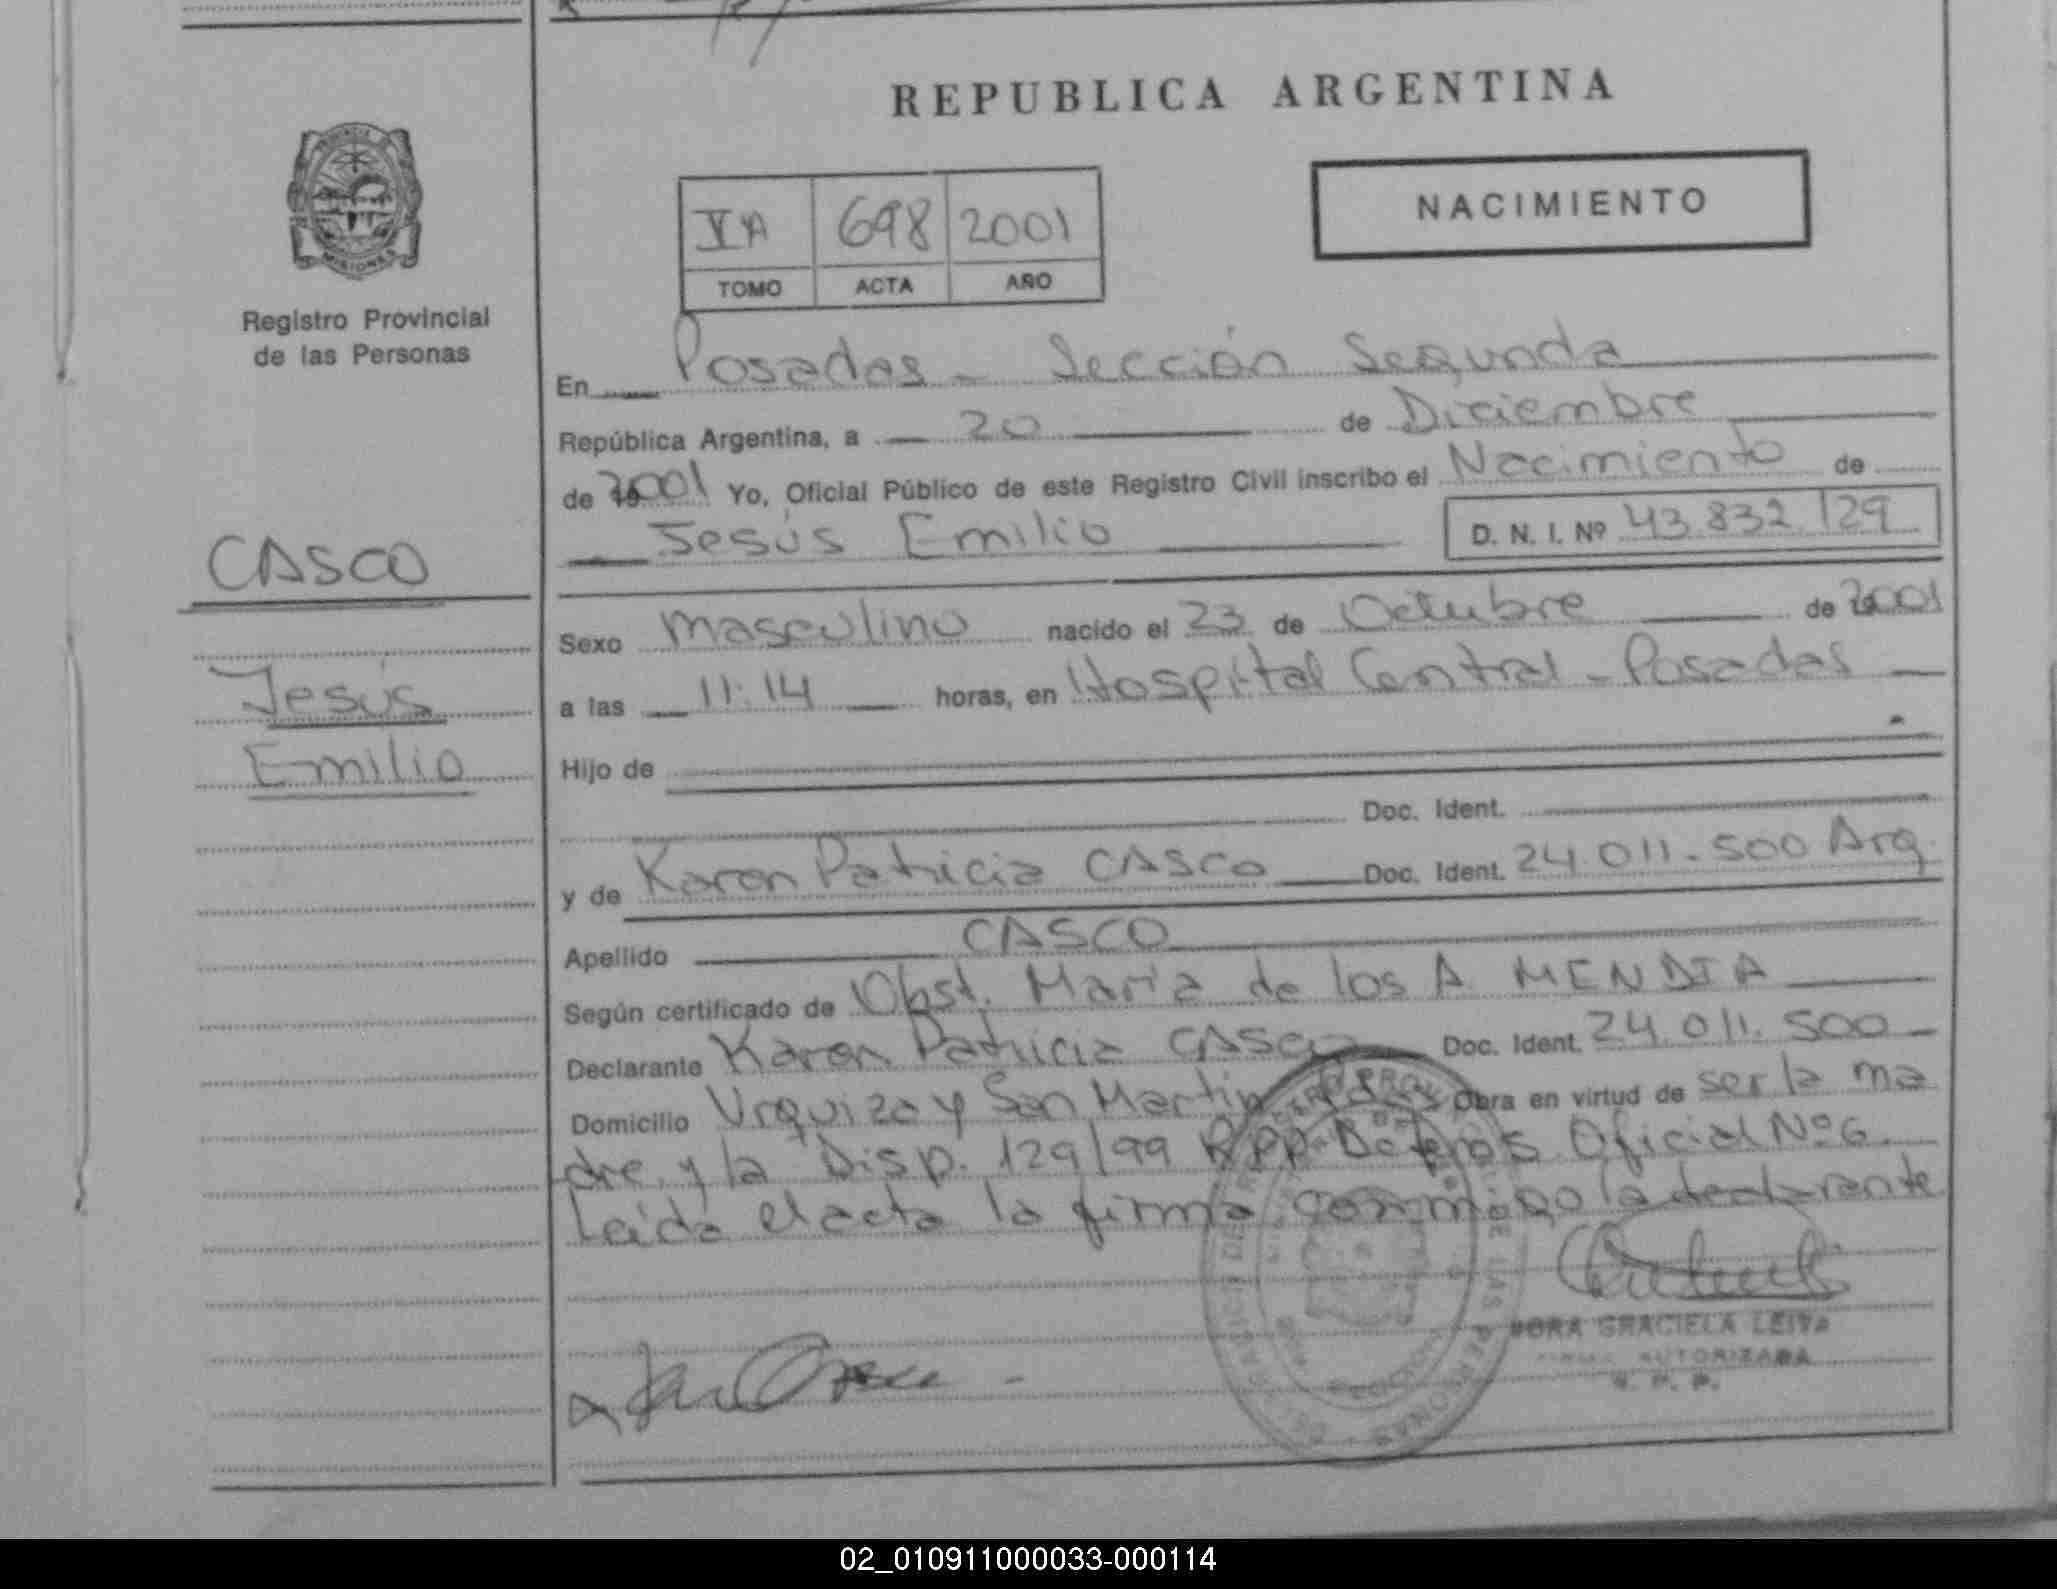 REPUBLICA ARGENTINA
PROVINCIA
MISIONES
Registro Provincial
de las Personas
VA 698 2001
TOMO ACTA AÑO
NACIMIENTO
En Posadas - Sección Segunda
República Argentina, a 20 de Diciembre
de 2001 Yo, Oficial Público de este Registro Civil inscribo el Nacimiento de
Jesús Emilio D. N. I. Nº 43 832 129
CASCO
Jesús
Emilio
Sexo masculino nacido el 23 de Octubre de 2001
a las 11:14 horas, en Hospital Central - Posadas
Hijo de
Doc. Ident.
y de Karen Patricia CASCO Doc. Ident. 24.011.500 Arg.
Apellido CASCO
Según certificado de Obst. María de los A. MENDIA
Declarante Karen Patricia CASCO Doc. Ident. 24.011.500
Domicilio Urquiza y San Martín Obra en virtud de ser la ma
dre y la Disp. 129/99 RPP Oficial Nº 6.
Leída el acta la firma conmigo la declarante
GRACIELA LEIVA
AUTORIZADA
R. P. P.
DE LAS PERSONAS
02_010911000033-000114